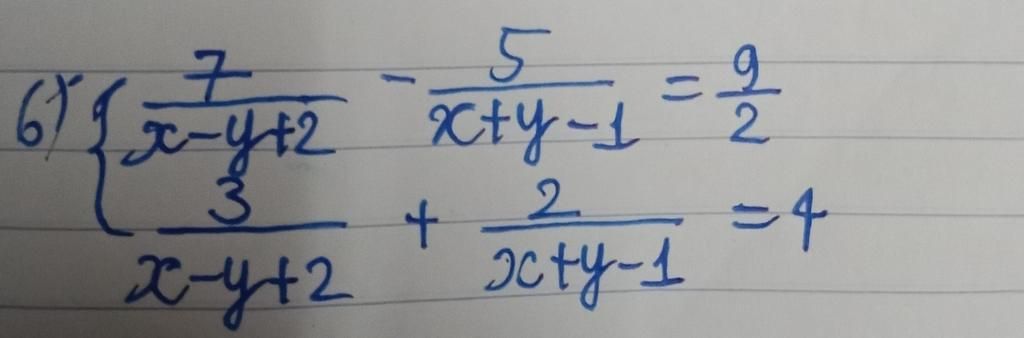 6) { 7/(x-y+2) - 5/(x+y-1) = 9/2
3/(x-y+2) + 2/(x+y-1) = 4